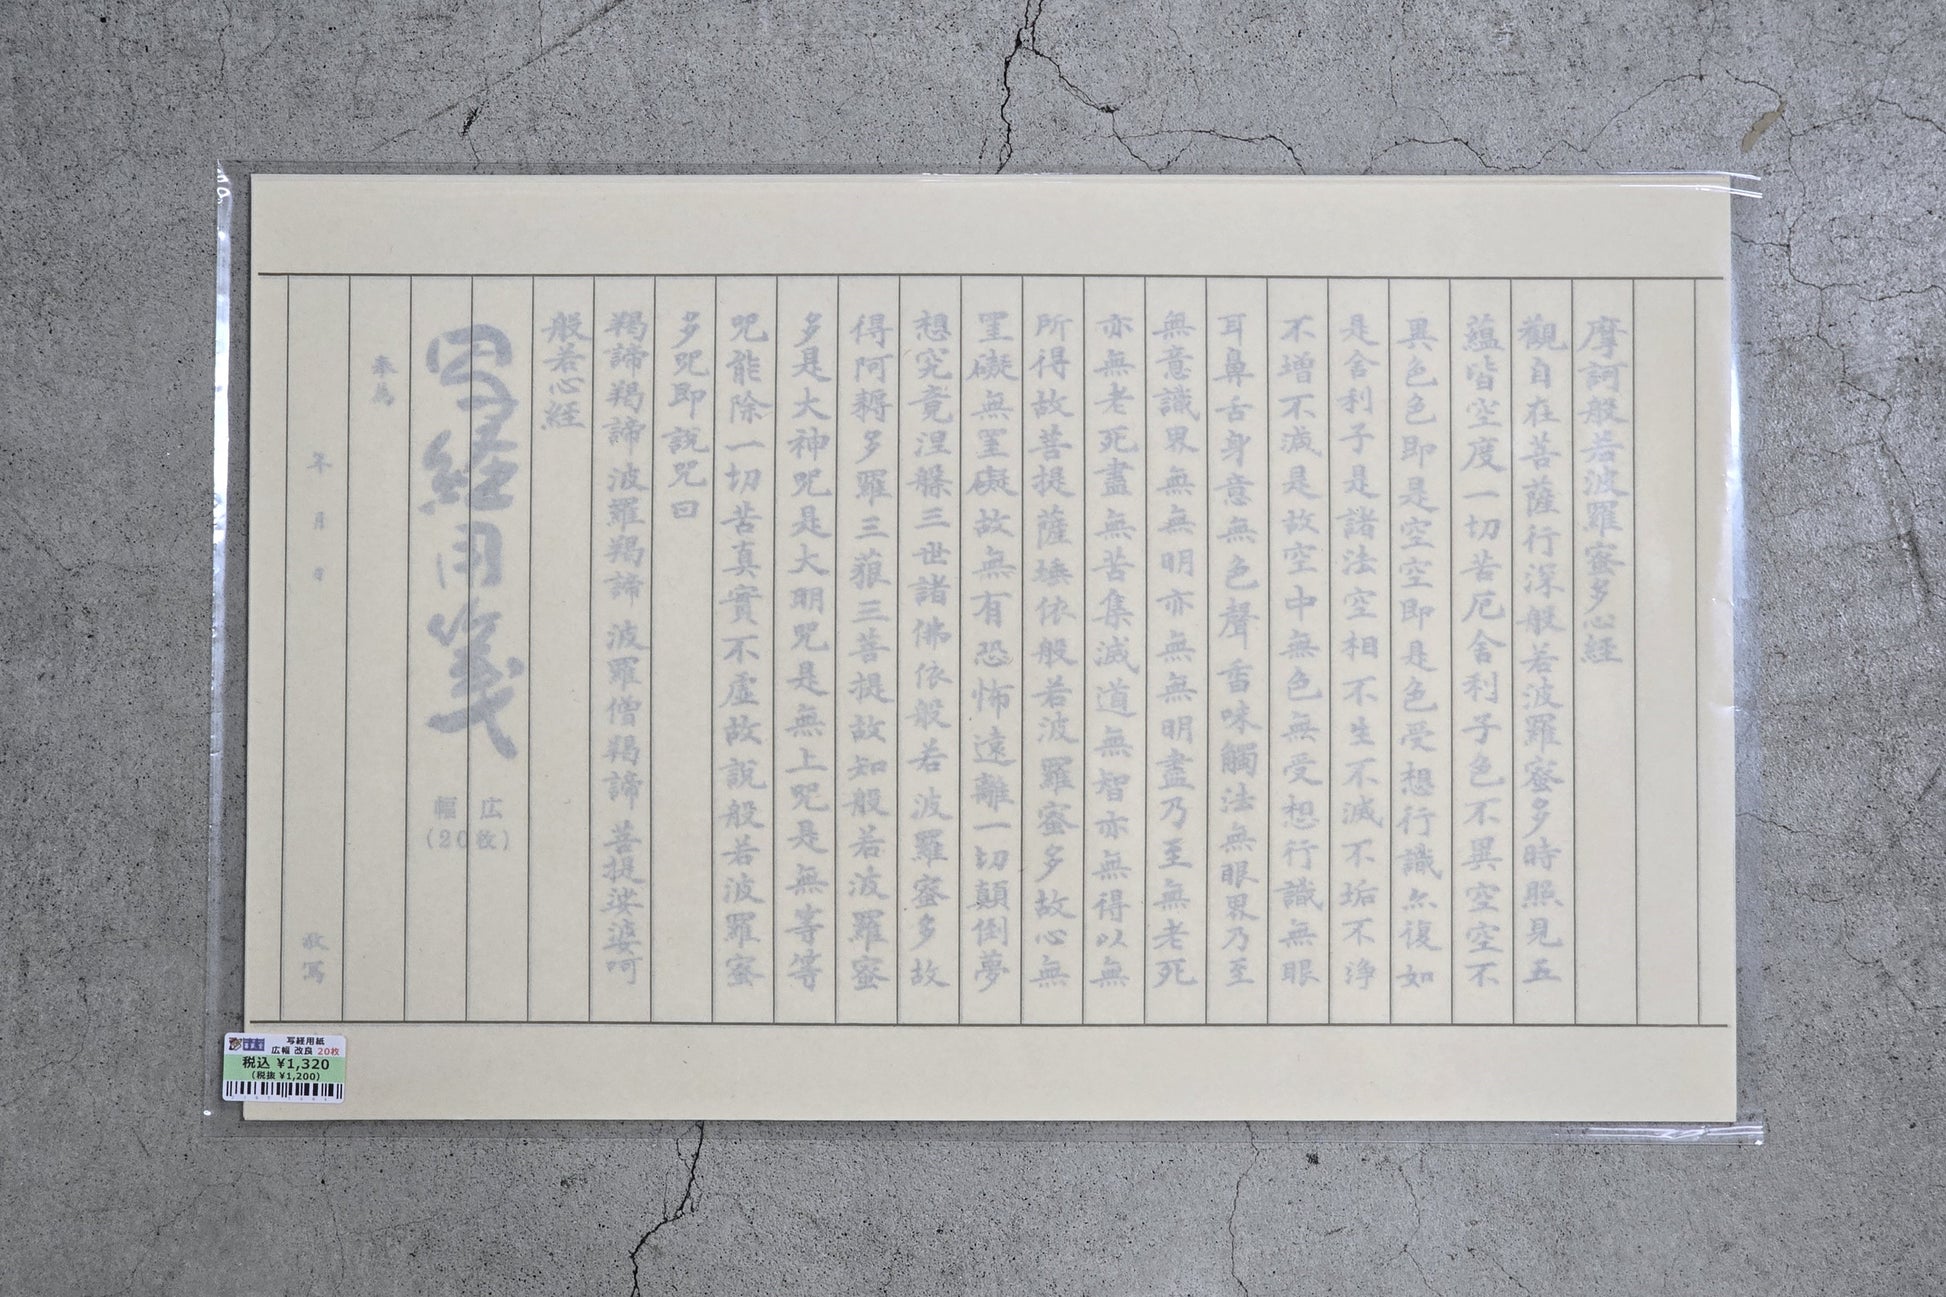 摩訶般若波羅蜜多心経
觀自在菩薩行深般若波羅蜜多時照見五
蘊皆空度一切苦厄舍利子色不異空空不
異色色即是空空即是色受想行識亦復如
是舍利子是諸法空相不生不滅不垢不浄
不増不減是故空中無色無受想行識無眼
耳鼻舌身意無色聲香味觸法無眼界乃至
無意識界無無明亦無無明盡乃至無老死
亦無老死盡無苦集滅道無智亦無得以無
所得故菩提薩埵依般若波羅蜜多故心無
罣礙無罣礙故無有恐怖遠離一切顛倒夢
想究竟涅槃三世諸佛依般若波羅蜜多故
得阿耨多羅三藐三菩提故知般若波羅蜜
多是大神咒是大明咒是無上咒是無等等
咒能除一切苦真實不虚故説般若波羅蜜
多咒即説咒曰
羯諦羯諦波羅羯諦 波羅僧羯諦 菩提娑婆呵
般若心経
写経用箋
広幅
(20枚)
奉為
年 月 日
敬写
写経用紙
広幅 改良 20枚
税込 ¥1,320
(税抜 ¥1,200)